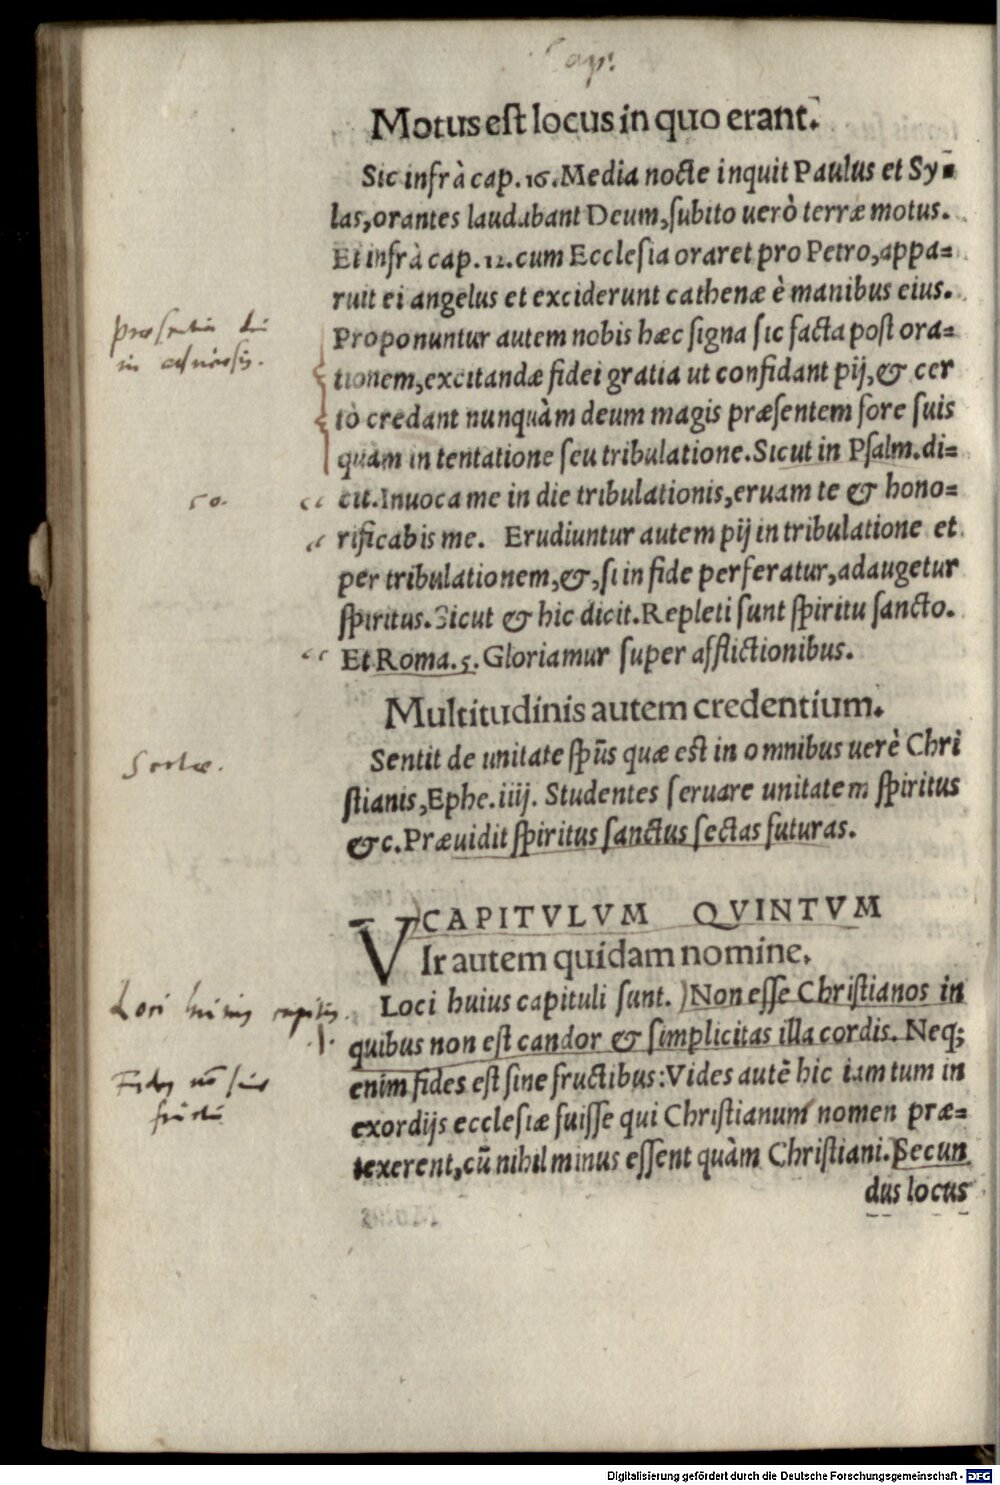 Cap.
Motus est locus in quo erant.
Sic infrà cap. 16. Media nocte inquit Paulus et Sy=
las, orantes laudabant Deum, subito uerò terræ motus.
Et infrà cap. 12. cum Ecclesia oraret pro Petro, appa=
ruit ei angelus et exciderunt cathenæ è manibus eius.
Proponuntur autem nobis hæc signa sic facta post ora=
tionem, excitandæ fidei gratia ut confidant pij, & cer
tò credant nunquàm deum magis præsentem fore suis
quàm in tentatione seu tribulatione. Sicut in Psalm. di=
cit. Inuoca me in die tribulationis, eruam te & hono=
rificabis me. Erudiuntur autem pij in tribulatione et
per tribulationem, &, si in fide perferatur, adaugetur
spiritus. Sicut & hic dicit. Repleti sunt spiritu sancto.
Et Roma. 5. Gloriamur super afflictionibus.
Multitudinis autem credentium.
Sentit de unitate spūs quæ est in omnibus uerè Chri
stianis, Ephe. iiij. Studentes seruare unitatem spiritus
&c. Præuidit spiritus sanctus sectas futuras.
CAPITVLVM QVINTVM
VIr autem quidam nomine.
Loci huius capituli sunt. Non esse Christianos in
quibus non est candor & simplicitas illa cordis. Neq;
enim fides est sine fructibus: Vides autē hic iam tum in
exordijs ecclesiæ fuisse qui Christianum nomen præ=
texerent, cū nihil minus essent quàm Christiani. Secun
dus locus
præsentia dei
in adversis.
50.
Sectæ.
Loci huius capitis.
.1.
Fides nō sine
fructu
Digitalisierung gefördert durch die Deutsche Forschungsgemeinschaft - DFG